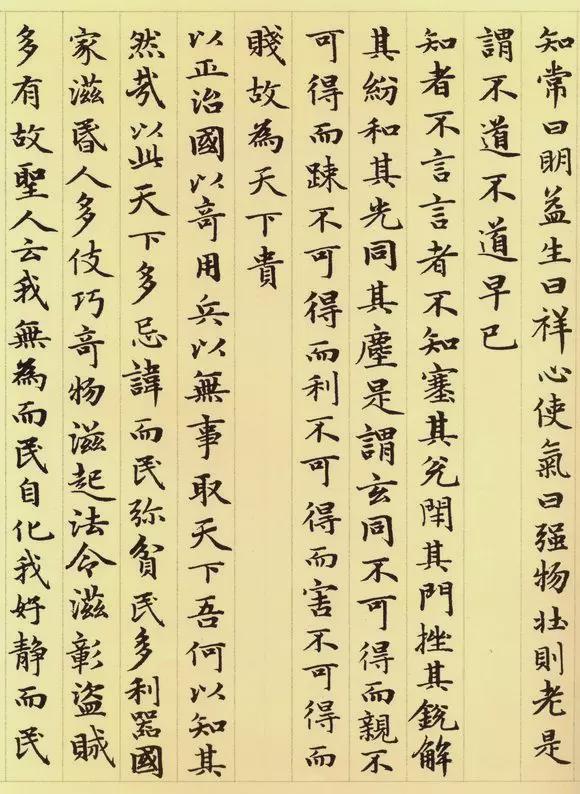 知常曰明益生曰祥心使氣曰强物壯則老是
謂不道不道早已
知者不言言者不知塞其兌閉其門挫其銳解
其紛和其光同其塵是謂玄同不可得而親不
可得而踈不可得而利不可得而害不可得而
賤故為天下貴
以正治國以奇用兵以無事取天下吾何以知其
然㢤以此天下多忌諱而民弥貧民多利器國
家滋昬人多伎巧奇物滋起法令滋彰盜賊
多有故聖人云我無為而民自化我好靜而民